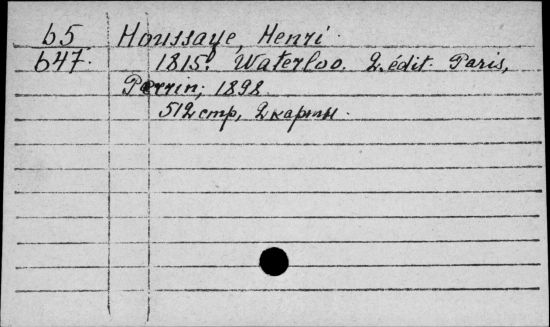 б5 Houssaye, Henri.
647. 1815. Waterloo. 2. édit. Paris,
Perrin, 1898.
512 стр, 2 карты.